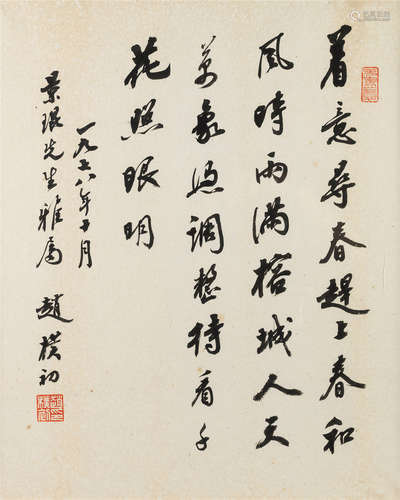 着意寻春赶上春和
风时雨满榕城人天
万象思调整待看千
花照眼明
一九七八年十月
景琨先生雅属 赵朴初